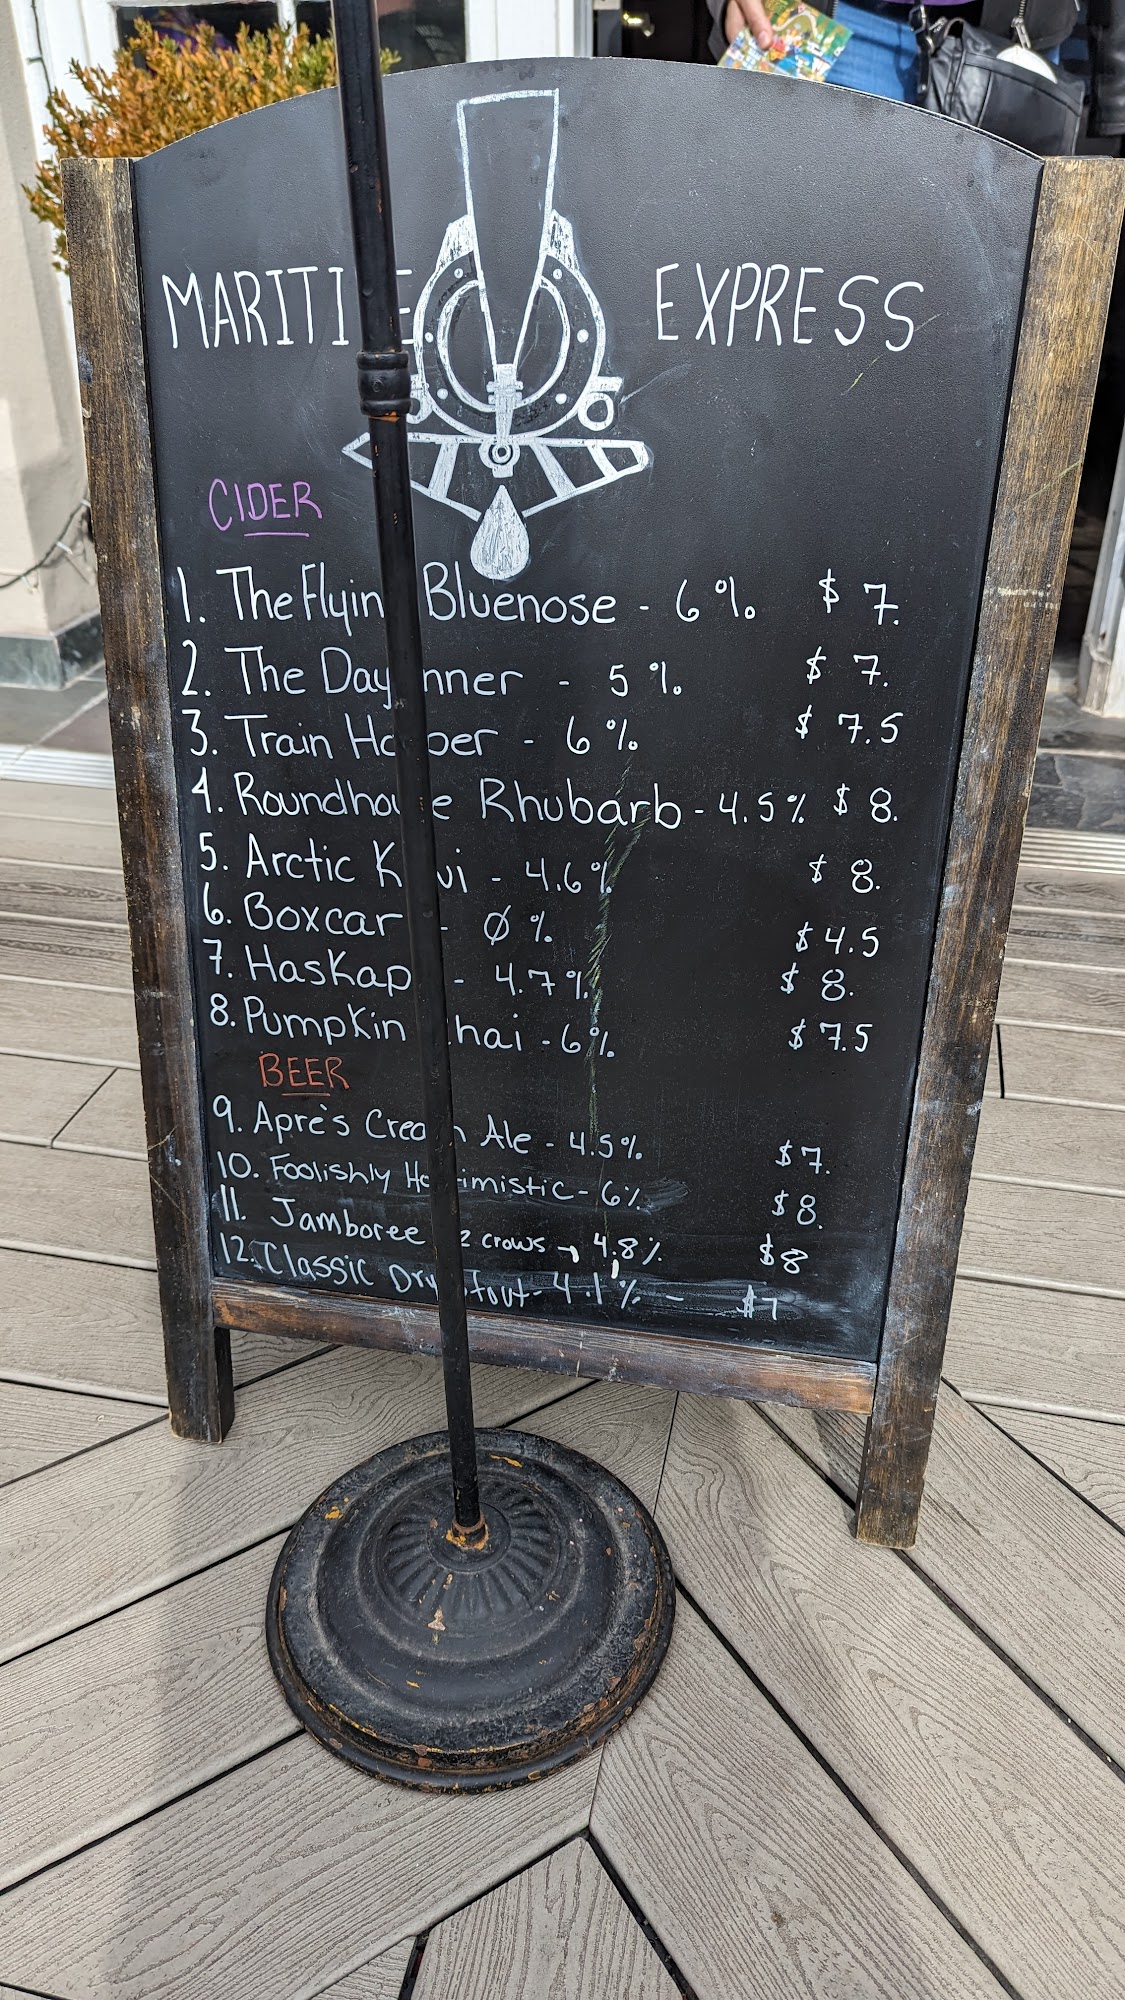 MARITI E EXPRESS
CIDER
1. The Flyin Bluenose - 6% $7.
2. The Day nner - 5% $7.
3. Train Ho per - 6% $7.5
4. Roundhou e Rhubarb - 4.5% $8.
5. Arctic K wi - 4.6% $8.
6. Boxcar - 0% $4.5
7. Haskap - 4.7% $8.
8. Pumpkin hai - 6% $7.5
BEER
9. Apre's Cream Ale - 4.5% $7.
10. Foolishly Ho timistic - 6% $8.
11. Jamboree 2 crows - 4.8% $8
12. Classic Dry Stout - 4.1% - $7